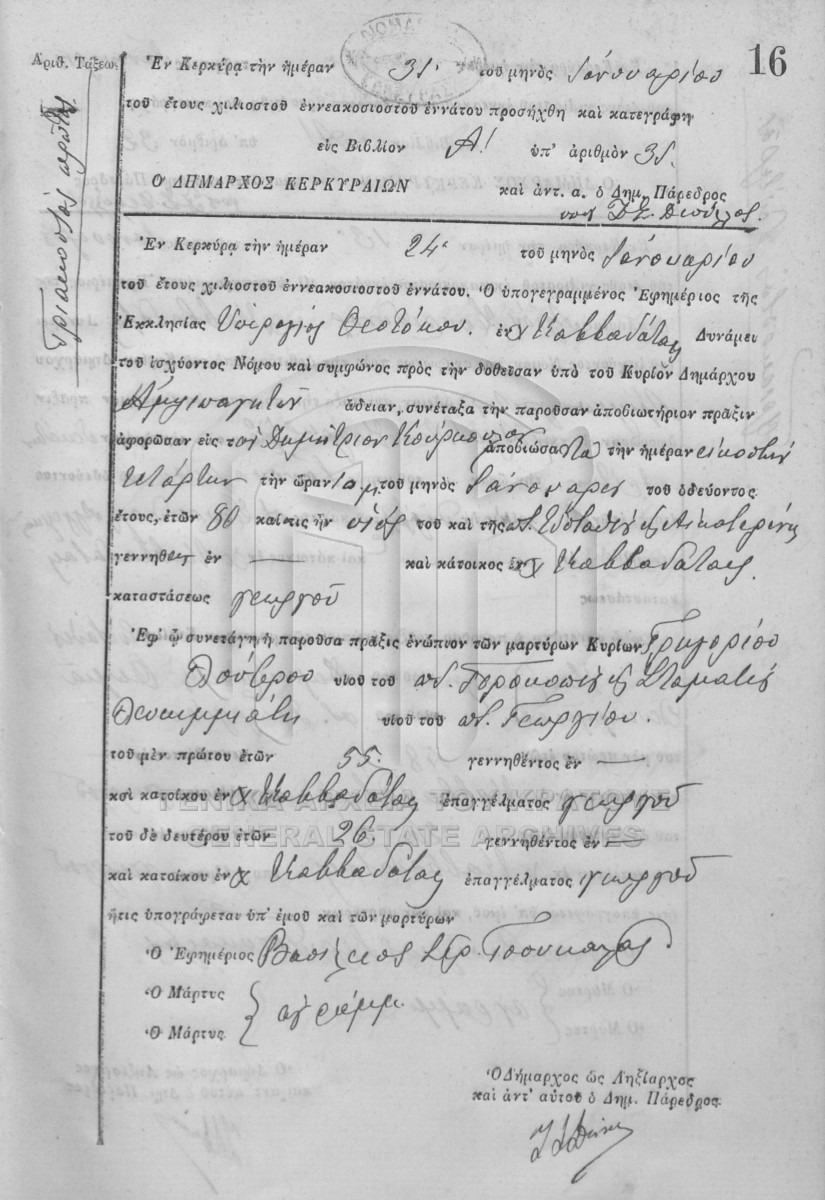 Αριθ. Τάξεως
Τριακοστὸς πρῶτος
16
Ἐν Κερκύρᾳ τὴν ἡμέραν 31 τοῦ μηνὸς Ἰανουαρίου
τοῦ ἔτους χιλιοστοῦ ἐννεακοσιοστοῦ ἐννάτου προσήχθη καὶ κατεγράφη
εἰς Βιβλίον Α! ὑπ' ἀριθμὸν 31.
Ὁ ΔΗΜΑΡΧΟΣ ΚΕΡΚΥΡΑΙΩΝ καὶ ἀντ. α. ὁ Δημ. Πάρεδρος
Ἐν Κερκύρᾳ τὴν ἡμέραν 24 τοῦ μηνὸς Ἰανουαρίου
τοῦ ἔτους χιλιοστοῦ ἐννεακοσιοστοῦ ἐννάτου. Ὁ ὑπογεγραμμένος Ἐφημέριος τῆς
Ἐκκλησίας Ὑπεραγίας Θεοτόκου. ἐν χ Καββαδάταις Δυνάμει
τοῦ ἰσχύοντος Νόμου καὶ συμφώνος πρὸς τὴν δοθεῖσαν ὑπὸ τοῦ Κυρίου Δημάρχου
Ἀμφιπαγητῶν ἄδειαν, συνέταξα τὴν παροῦσαν ἀποβιωτήριον πρᾶξιν
ἀφορῶσαν εἰς τὸν Δημήτριον ἀποβιώσαντα τὴν ἡμέραν εἰκοστὴν
τετάρτην τὴν ὥραν 10 μ.μ. τοῦ μηνὸς Ἰανουαρίου τοῦ ὁδεύοντος
ἔτους, ἐτῶν 80 καὶ τις ἦν υἱὸς τοῦ καὶ τῆς π. Εὐσταθίου & Αἰκατερίνης
γεννηθεὶς ἐν — καὶ κάτοικος ἐν χ Καββαδάταις.
καταστάσεως γεωργοῦ
Ἐφ' ᾧ συνετάγη ἡ παροῦσα πρᾶξις ἐνώπιον τῶν μαρτύρων Κυρίων Γρηγορίου
υἱοῦ τοῦ ποτ. Προκοπίου & Σταματίου
υἱοῦ τοῦ ποτ. Γεωργίου.
τοῦ μὲν πρώτου ἐτῶν 55. γεννηθέντος ἐν —
καὶ κατοίκου ἐν χ Καββαδάταις ἐπαγγέλματος γεωργοῦ
ΓΕΝΙΚΑ ΑΡΧΕΙΑ ΤΟΥ ΚΡΑΤΟΥΣ
τοῦ δὲ δευτέρου ἐτῶν 26 γεννηθέντος ἐν —
GENERAL STATE ARCHIVES
καὶ κατοίκου ἐν χ Καββαδάταις ἐπαγγέλματος γεωργοῦ
ἥτις ὑπογράφεται ὑπ' ἐμοῦ καὶ τῶν μαρτύρων
Ὁ Ἐφημέριος Βασίλειος Ἱερ. Τσουκαλᾶς
Ὁ Μάρτυς
ἀγράμμ.
Ὁ Μάρτυς
Ὁ Δήμαρχος ὡς Ληξίαρχος
καὶ ἀντ' αὐτοῦ ὁ Δημ. Πάρεδρος